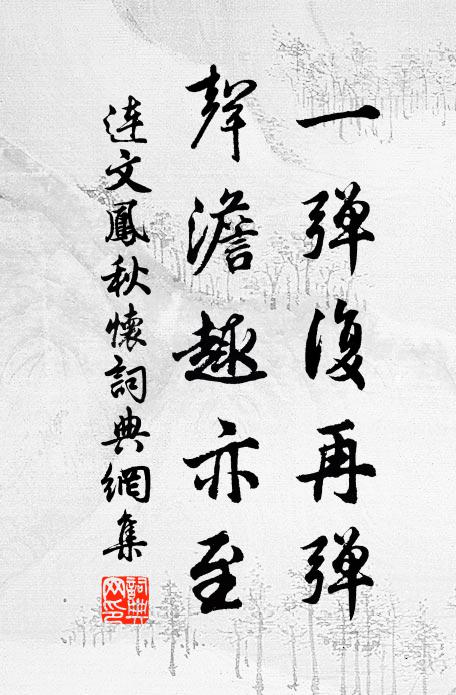 一弹復再弹
聲澹趣亦至
連文鳳秋懷詞典網集
詞典网印